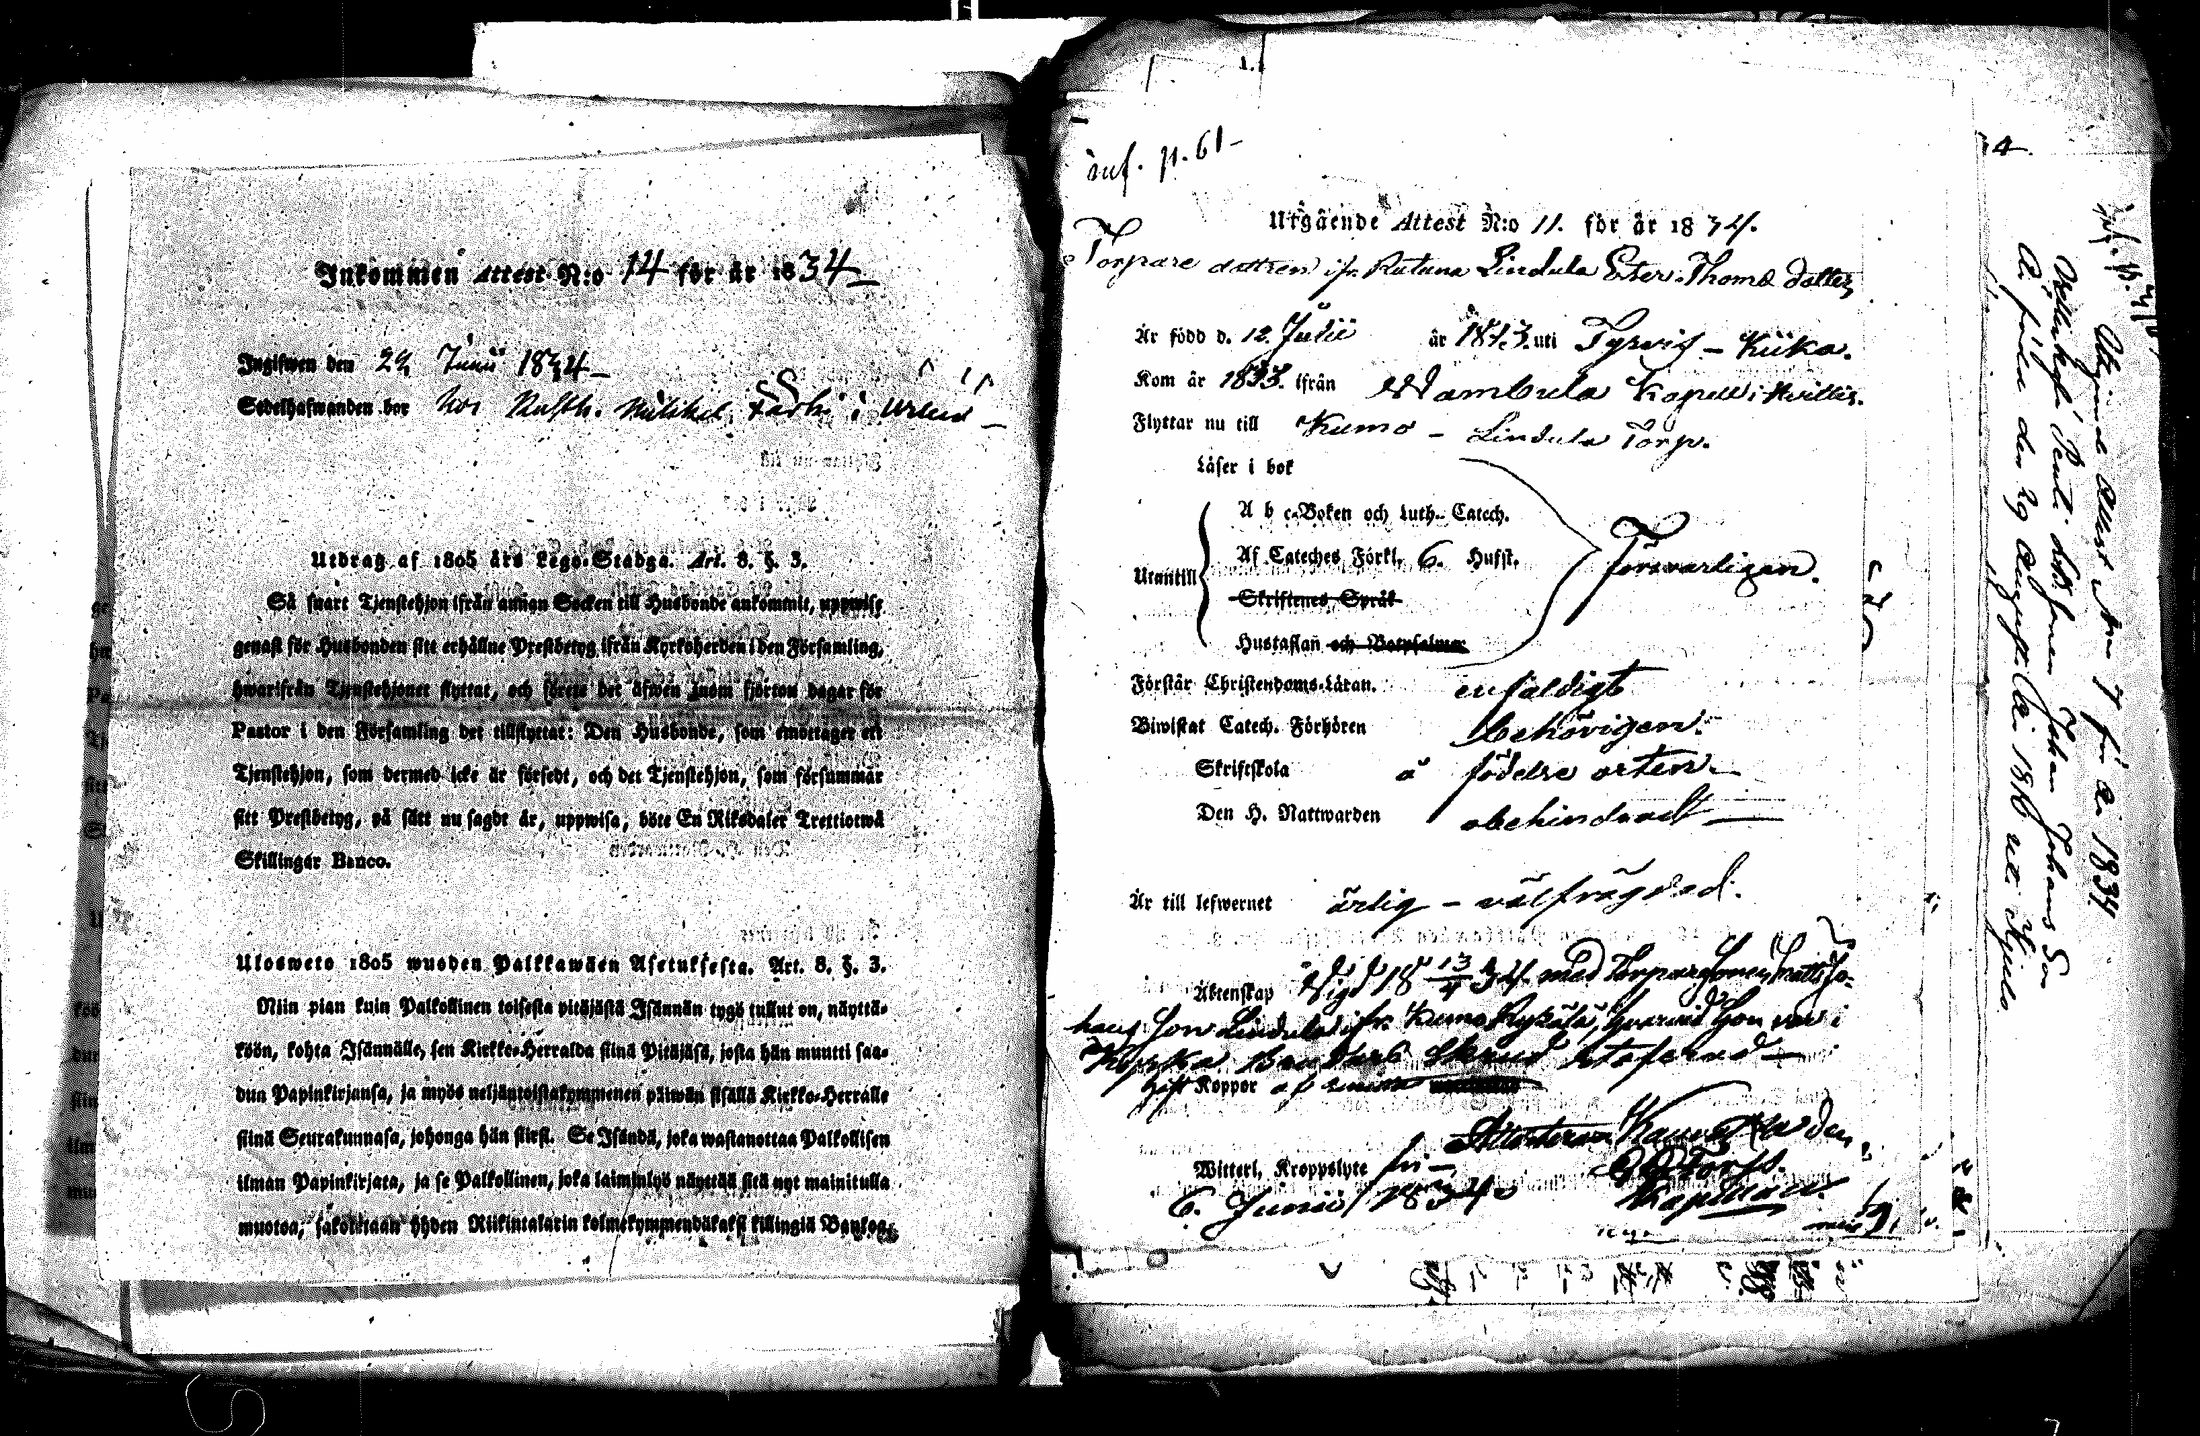 Inkommen Attest N:o 14 för år 1834
Ingifwen den 29 Junii 1834
Sedelhafwanden bor hos Rusth. Mickel i
Utdrag af 1805 års Lego-Stadga. Art. 8. §. 3.
Så snart Tjenstehjon ifrån annan Socken till Husbonde ankommit, uppwise
genast för Husbonden sitt erhållne Prestbetyg ifrån Kyrkoherden i den Församling,
hwarifrån Tjenstehjonet flyttat, och förete det äfwen inom fjorton dagar för
Pastor i den Församling det tillflyttat: Den Husbonde, som emottager ett
Tjenstehjon, som dermed icke är försedt, och det Tjenstehjon, som försummar
sitt Prestbetyg, på sätt nu sagdt är, uppwisa, böte En Riksdaler Trettiotwå
Skillingar Banco.
Ulosweto 1805 wuoden Palkkawäen Asetuksesta. Art. 8. §. 3.
Niin pian kuin Palkollinen toisesta pitäjästä Isännän tygö tullut on, näyttä-
köön, kohta Isännälle, sen Kirkko-Herralda siinä Pitäjäsä, josta hän muutti saa-
dun Papinkirjansa, ja myös neljäntoistakymmenen päiwän sisällä Kirkko-Herralle
siinä Seurakunnasa, johonga hän siirsi. Se Isändä, joka wastanottaa Palkollisen
ilman Papinkirjata, ja se Palkollinen, joka laiminlyö näyttää sitä nyt mainitulla
muotoa, sakoitetaan yhden Riikintalarin kolmekymmendäkaksi killingiä Bankos.
inf. p. 61
Utgående Attest N:o 11. för år 1834.
Torpare dottren ifr. Lindula Ester Thomæ dotter
Är född d. 12. Julii år 1813. uti Tyrvis - Kiika.
Kom år 1833. ifrån Wambula Kapell i Hvittis.
Flyttar nu till Kumo - Lindula Torp.
Läser i bok
A b c-Boken och Luth. Catech.
Utantill Af Cateches Förkl. 6. Hufst. Försvarligen.
Skriftenes Språk
Hustaflan och Botpsalmer
Förstår Christendoms-Läran. enfaldigt
Biwistat Catech. Förhören behörigen.
Skriftskola å födelse orten.
Den H. Nattwarden obehindradt
Är till lefwernet ärlig - välfrägdad.
Äktenskap Vigd 18 13/4 34. med Torparesonen Matts Jo-
hans Son Lindula ifr. Kumo hvarvid hon var i
Haft Koppor
Attesterar den
Witterl. Kroppslyte fri
6. Junii 1834.
Kapellan.
4.
inf. p.
Utgående Attest N:o 7 för år 1834
Johan Johans Son
Är född den 29 Augusti år 1816 uti